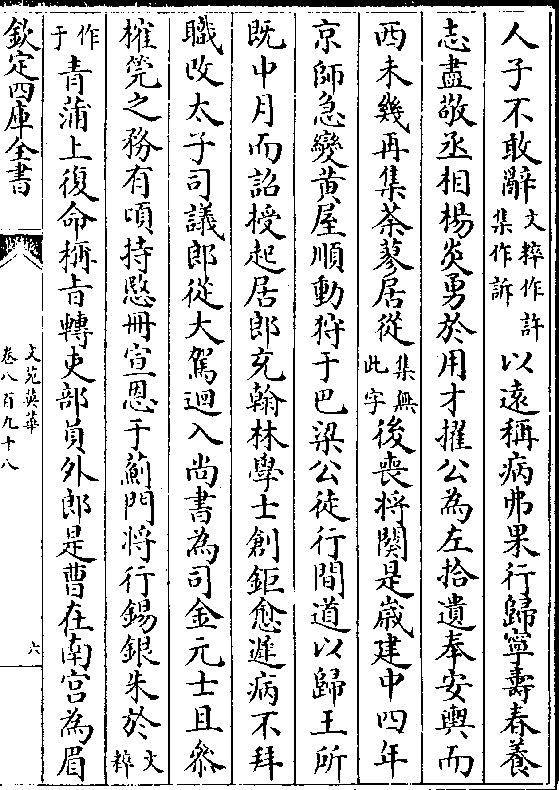 人子不敢辭文粹作許集作訴以遠稱病弗果行歸寧壽春養
志盡敬丞相楊炎勇於用才擢公為左拾遺奉安輿而
西未幾再集荼蓼居從集無此字後喪将闋是歳建中四年
京師急變黄屋順動狩于巴梁公徒行間道以歸王所
既中月而詔授起居郎充翰林學士創鉅愈遲病不拜
職改太子司議郎從大駕迴入尚書為司金元士且叅
榷筦之務有頃持愍冊宣恩于薊門将行錫銀朱於文粹
作于青蒲上復命稱㫖轉吏部員外郎是曹在南宫為眉
欽定四庫全書
文苑英華
卷八百九十八
六